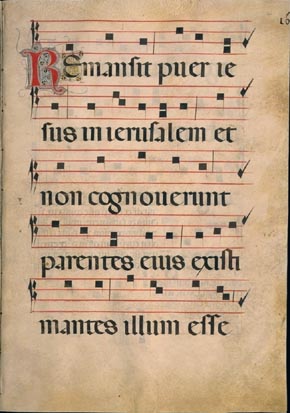 16
Remansit puer ie
sus in ierusalem et
non cognouerunt
parentes eius existi
mantes illum esse